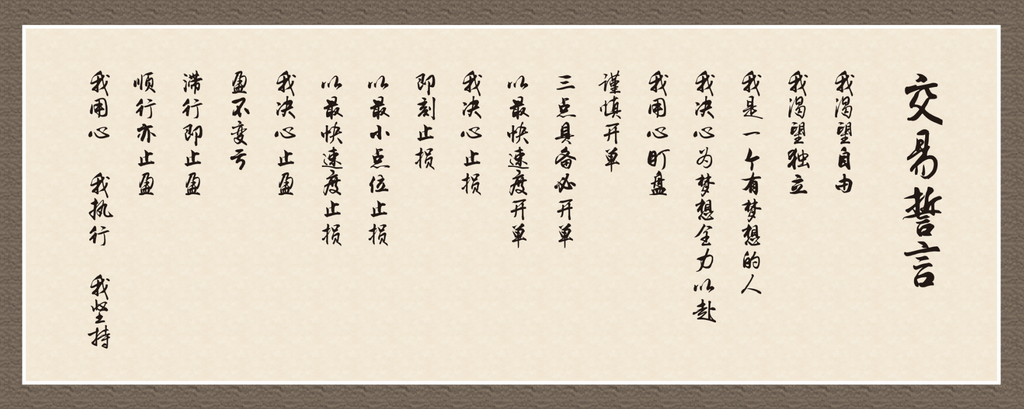 交易誓言
我渴望自由
我渴望独立
我是一个有梦想的人
我决心为梦想全力以赴
我用心盯盘
谨慎开单
三点具备必开单
以最快速度开单
我决心止损
即刻止损
以最小点位止损
以最快速度止损
我决心止盈
盈不变亏
滞行即止盈
顺行亦止盈
我用心 我执行 我坚持